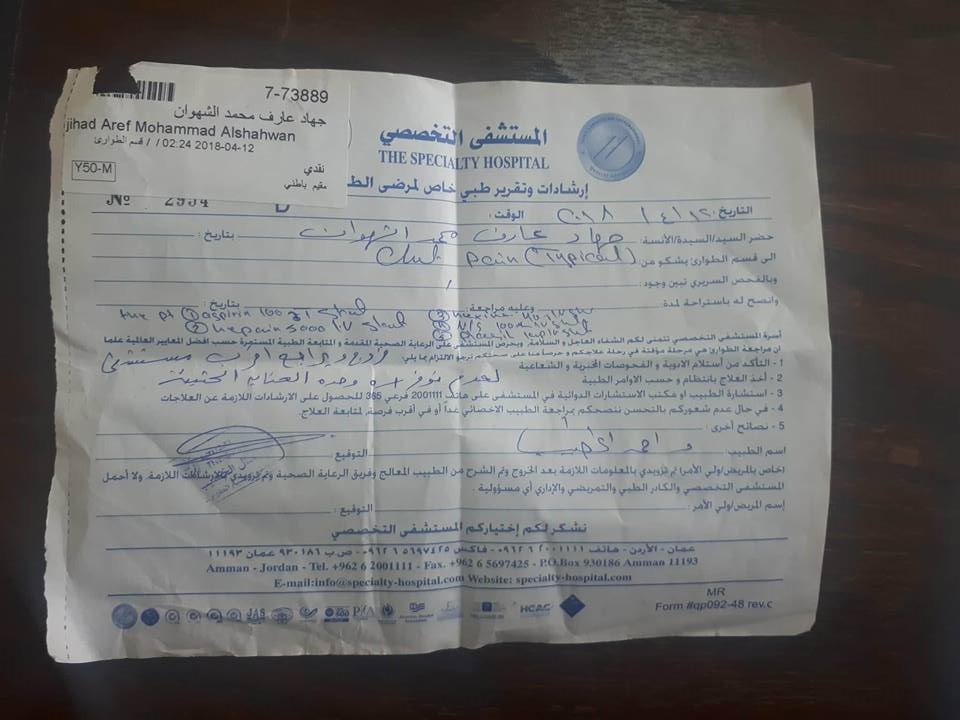 7-73889
جهاد عارف محمد الشهوان
jihad Aref Mohammad Alshahwan
قسم الطوارئ / / 02:24 2018-04-12
نقدي
Y50-M
مقيم باطني
المستشفى التخصصي
THE SPECIALTY HOSPITAL
إرشادات وتقرير طبي خاص لمرضى الط
№ 2954 D
التاريخ: ٢٠١٨ / ٤ / ١٢ الوقت:
حضر السيد/السيدة/الأنسة: جهاد عارف محمد الشهوان بتاريخ:
الى قسم الطوارئ يشكو من Chest pain (Typical)
وبالفحص السريري تبين وجود: /
وانصح له باستراحة لمدة وعليه مراجعة: بتاريخ:
the pt ① aspirin 100 stat
② heparin 5000 IV stat
أسرة المستشفى التخصصي تتمنى لكم الشفاء العاجل و السلامة، ويحرص المستشفى على الرعاية الصحية المقدمة و المتابعة الطبية المستمرة حسب افضل المعايير العالمية علما
ان مراجعة الطوارئ هي مرحلة مؤقتة في رحلة علاجكم و حرصا منا على صحتكم نرجو الالتزام بما يلي:
1 - التأكد من أستلام الادوية و الفحوصات المخبرية و الشعاعية خروج ويراجع اقرب مستشفى
2 - أخذ العلاج بانتظام و حسب الاوامر الطبية لعدم توفر اسرة وحدة العناية الحثيثة
3 - استشارة الطبيب او مكتب الاستشارات الدوائية في المستشفى على هاتف 2001111 فرعي 365 للحصول على الارشادات اللازمة عن العلاجات
4 - في حال عدم شعوركم بالتحسن ننصحكم بمراجعة الطبيب الاخصائي غداً أو في أقرب فرصة، لمتابعة العلاج.
5 - نصائح أخرى:
اسم الطبيب: التوقيع:
خاص بالمريض/ولي الأمر: تم تزويدي بالمعلومات اللازمة بعد الخروج وتم الشرح من الطبيب المعالج وفريق الرعاية الصحية وتم تزويدي بالارشادات اللازمة، ولا أحمل
المستشفى التخصصي والكادر الطبي والتمريضي والإداري أي مسؤولية .
إسم المريض/ولي الأمر: التوقيع:
نشكر لكم إختياركم المستشفى التخصصي
عمان - الأردن - هاتف ٢٠٠١١١١ ٦ ٠٩٦٢ - فاكس ٥٦٩٧٤٢٥ ٦ ٠٩٦٢ - ص.ب ٩٣٠١٨٦ عمان ١١١٩٣
Amman - Jordan - Tel. +962 6 2001111 - Fax. +962 6 5697425 - P.O.Box 930186 Amman 11193
E-mail:info@specialty-hospital.com Website: specialty-hospital.com
JAS HCAC
MR
Form #qp092-48 rev.c